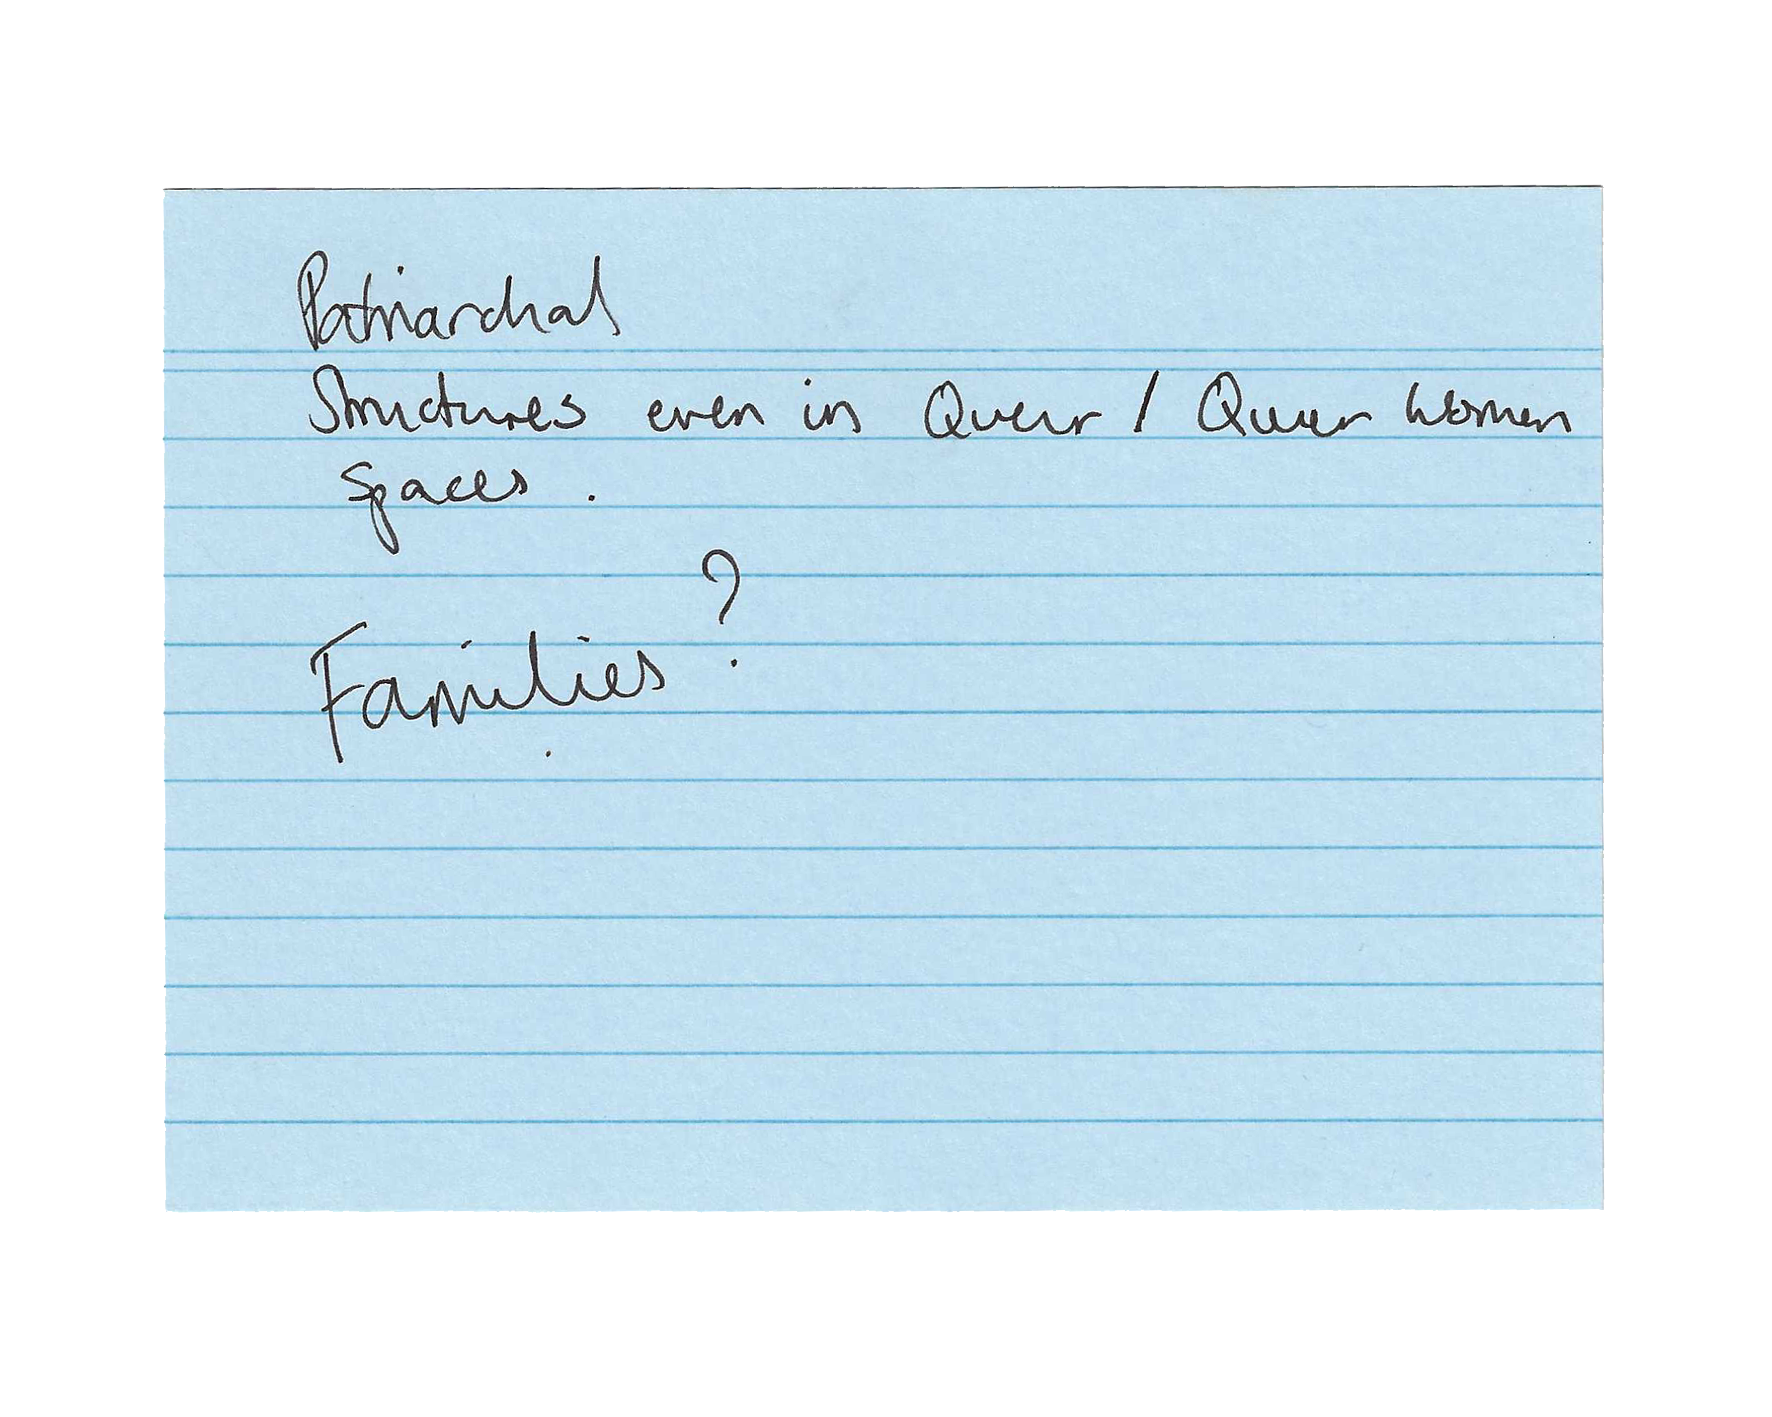 Patriarchal
Structures even in Queer / Queer Women
Spaces .
Families ?